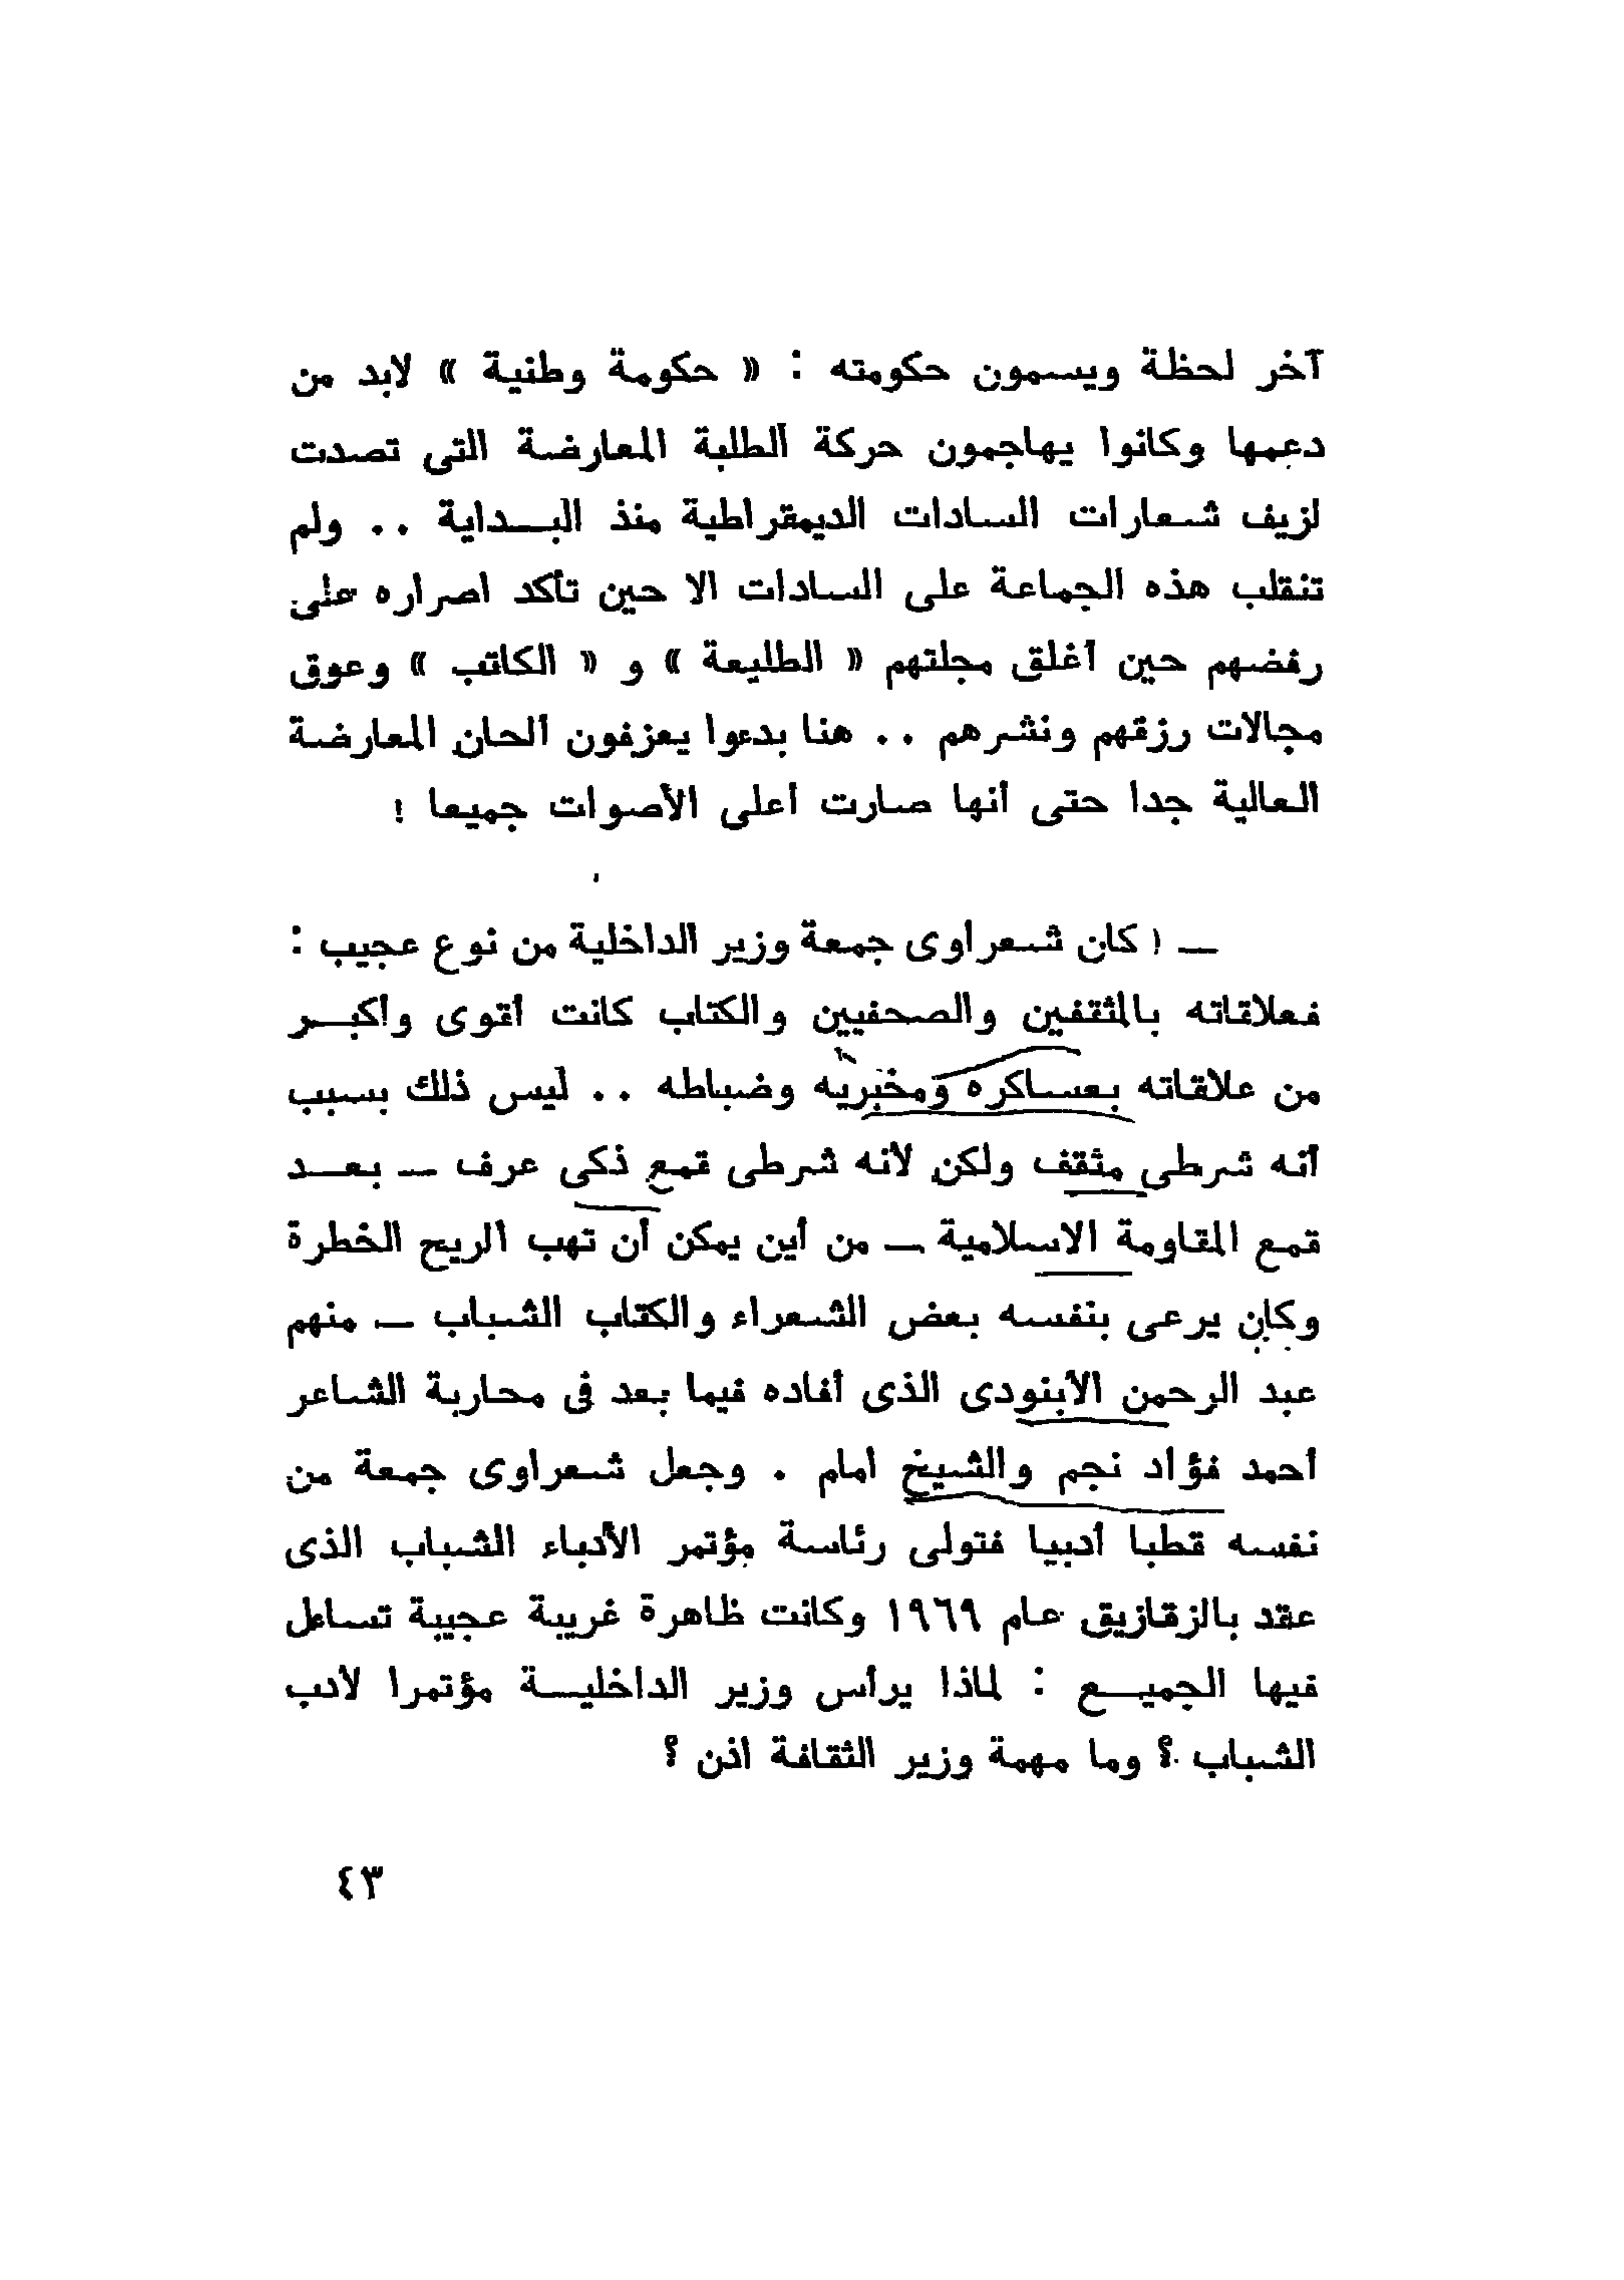 آخر لحظة ويسمون حكومته : « حكومة وطنية » لابد من
دعمها وكانوا يهاجمون حركة الطلبة المعارضة التى تصدت
لزيف شعارات السادات الديمقراطية منذ البـداية .. ولم
تنقلب هذه الجماعة على السادات الا حين تأكد اصراره على
رفضهم حين أغلق مجلتهم « الطليعة » و « الكاتب » وعوق
مجالات رزقهم ونشرهم .. هنا بدعوا يعزفون ألحان المعارضة
العالية جدا حتى أنها صارت أعلى الأصوات جميعا !
— ( كان شعراوى جمعة وزير الداخلية من نوع عجيب :
فعلاقاته بالمثقفين والصحفيين والكتاب كانت أقوى وأكبـر
من علاقاته بعساكره ومخبريه وضباطه .. ليس ذلك بسبب
أنه شرطى مثقف ولكن لأنه شرطى قمع ذكى عرف — بعـد
قمع المقاومة الاسلامية — من أين يمكن أن تهب الريح الخطرة
وكان يرعى بنفسه بعض الشعراء والكتاب الشباب — منهم
عبد الرحمن الأبنودى الذى أفاده فيما بعد فى محاربة الشاعر
أحمد فؤاد نجم والشيخ امام . وجعل شعراوى جمعة من
نفسه قطبا أدبيا فتولى رئاسة مؤتمر الأدباء الشباب الذى
عقد بالزقازيق عام ١٩٦٩ وكانت ظاهرة غريبة عجيبة تساءل
فيها الجميـع : لماذا يرأس وزير الداخليـة مؤتمرا لأدب
الشباب ؟ وما مهمة وزير الثقافة اذن ؟
٤٣